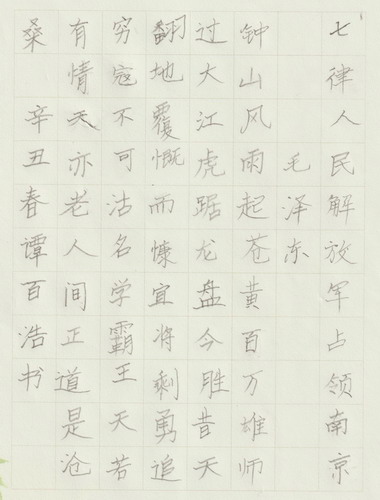 七律人民解放军占领南京
毛泽东
钟山风雨起苍黄百万雄师
过大江虎踞龙盘今胜昔天
翻地覆慨而慷宜将剩勇追
穷寇不可沽名学霸王天若
有情天亦老人间正道是沧
桑 辛丑春谭百浩书